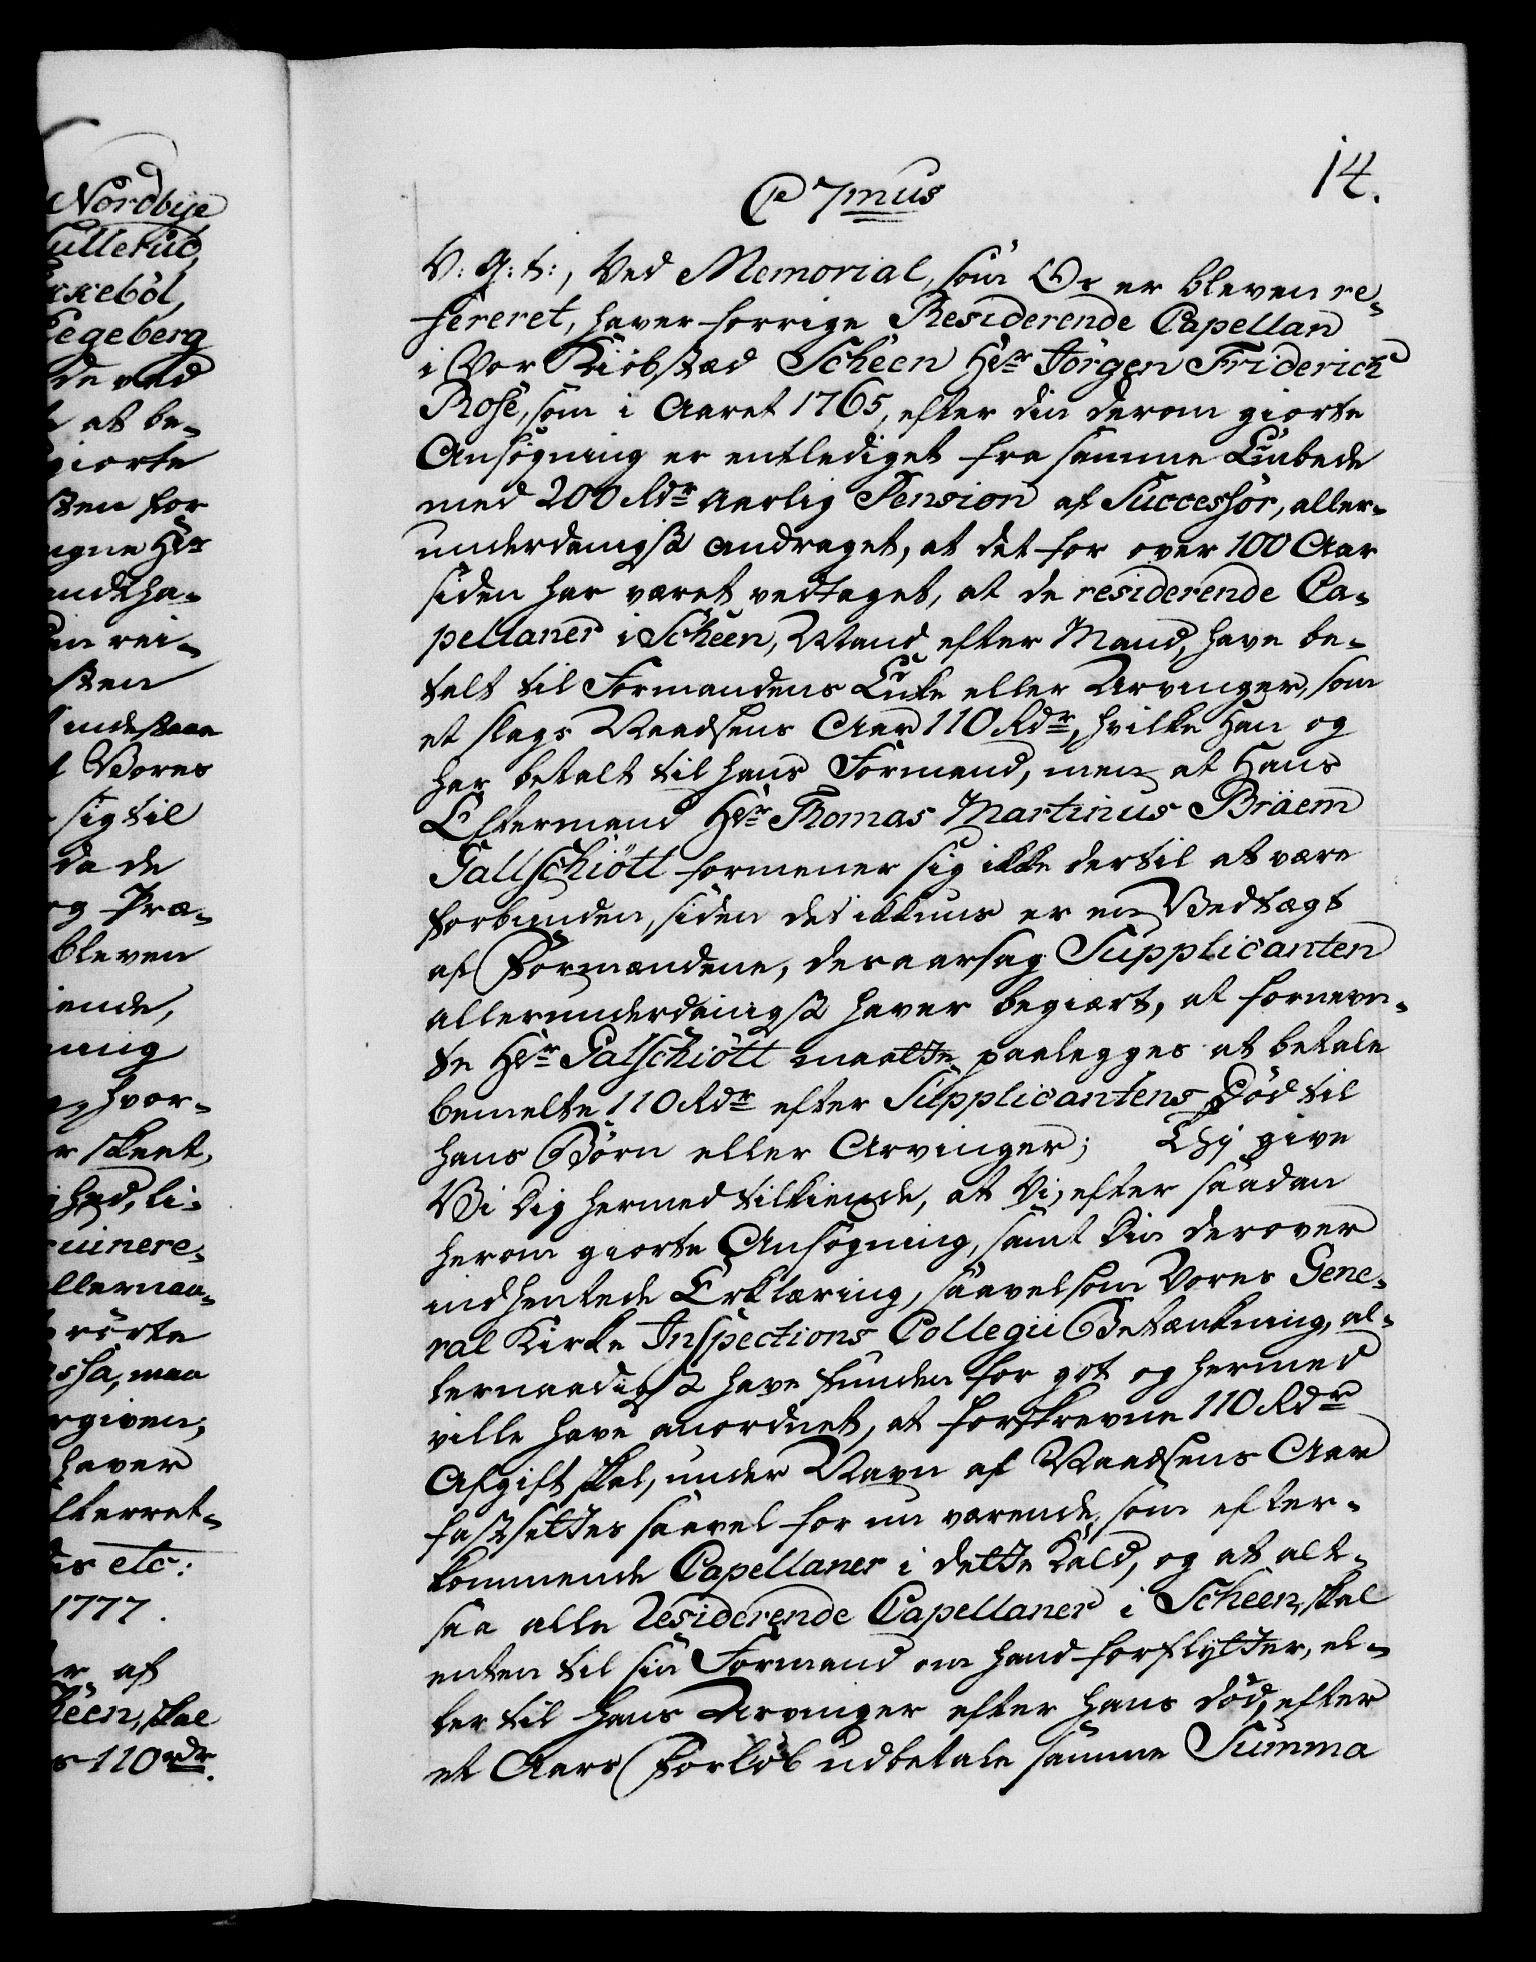 14.
C 7mus
V: G: T:, Ved Memorial, som Os er bleven re-
fereret, haver forrige Residerende Capellan
i Vor Kiöbstæd Scheen Hr Jörgen Friderich
Rose, som i Aaret 1765, efter din derom giorte
Ansögning er entlediget fra samme Embede
med 200 Rdr aarlig Pension af Successor, aller-
underdanigst andraget, at det for over 100 Aar
siden har været vedtaget, at de residerende Ca-
pellaner i Scheen, Mand efter Mand, have be-
talt til Formandens Enke eller Arvinger, som
et slags Naadsens Aar 110 Rdr, hvilke Han og
har betalt til hans Formand, men at Hans
Eftermand Hr Thomas Martinus Bräem
Gallschiött formener sig ikke dertil at være
forbunden, siden det ikkuns er en Vedtægt
af Formændene, desaarsag Supplicanten
allerunderdanigst haver begiært, at fornævn-
te Hr Galschiött maatte paalegges at betale
bemelte 110 Rdr efter Supplicantens Död til
hans Börn eller Arvinger; Thi give
Vi dig hermed tilkiende, at Vi, efter saadan
herom giorte Ansögning, samt din derover
indhentede Erklæring, saavelsom Vores Gene-
ral Kirke Inspections Collegii Betænkning, al-
lernaadigst have funden for got og hermed
ville have anordnet, at forskrevne 110 Rdr
Afgift skal, under Navn af Naadsens Aar
fastsettes saavel for nu værende, som efter-
kommende Capellaner i dette Kald, og at alt-
saa alle Residerende Capellaner i Scheen, skal
enten til sin Formand om hand forflytter, el-
ler til hans Arvinger efter hans död, efter
et Aars Forlöb udbetale samme Summa
Nordbye
Lulletud,
Segeberg
de ved
at be-
giorte
sten for
egne Hr
en rei-
sten
Vores
sig til
da de
og Præ-
bleven
hvor-
r skeet,
hed, li-
ruinere-
llernaa-
rörte
maa
rgiven;
haver
lterret-
etc:
1777.
r af
eén, skal
s 110 rdr.